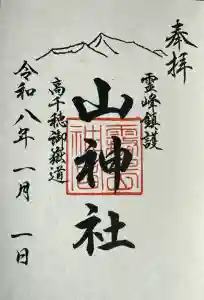 奉拝
霊峰鎮護
山神社
高千穂御嶽道
令和八年 一月 一日